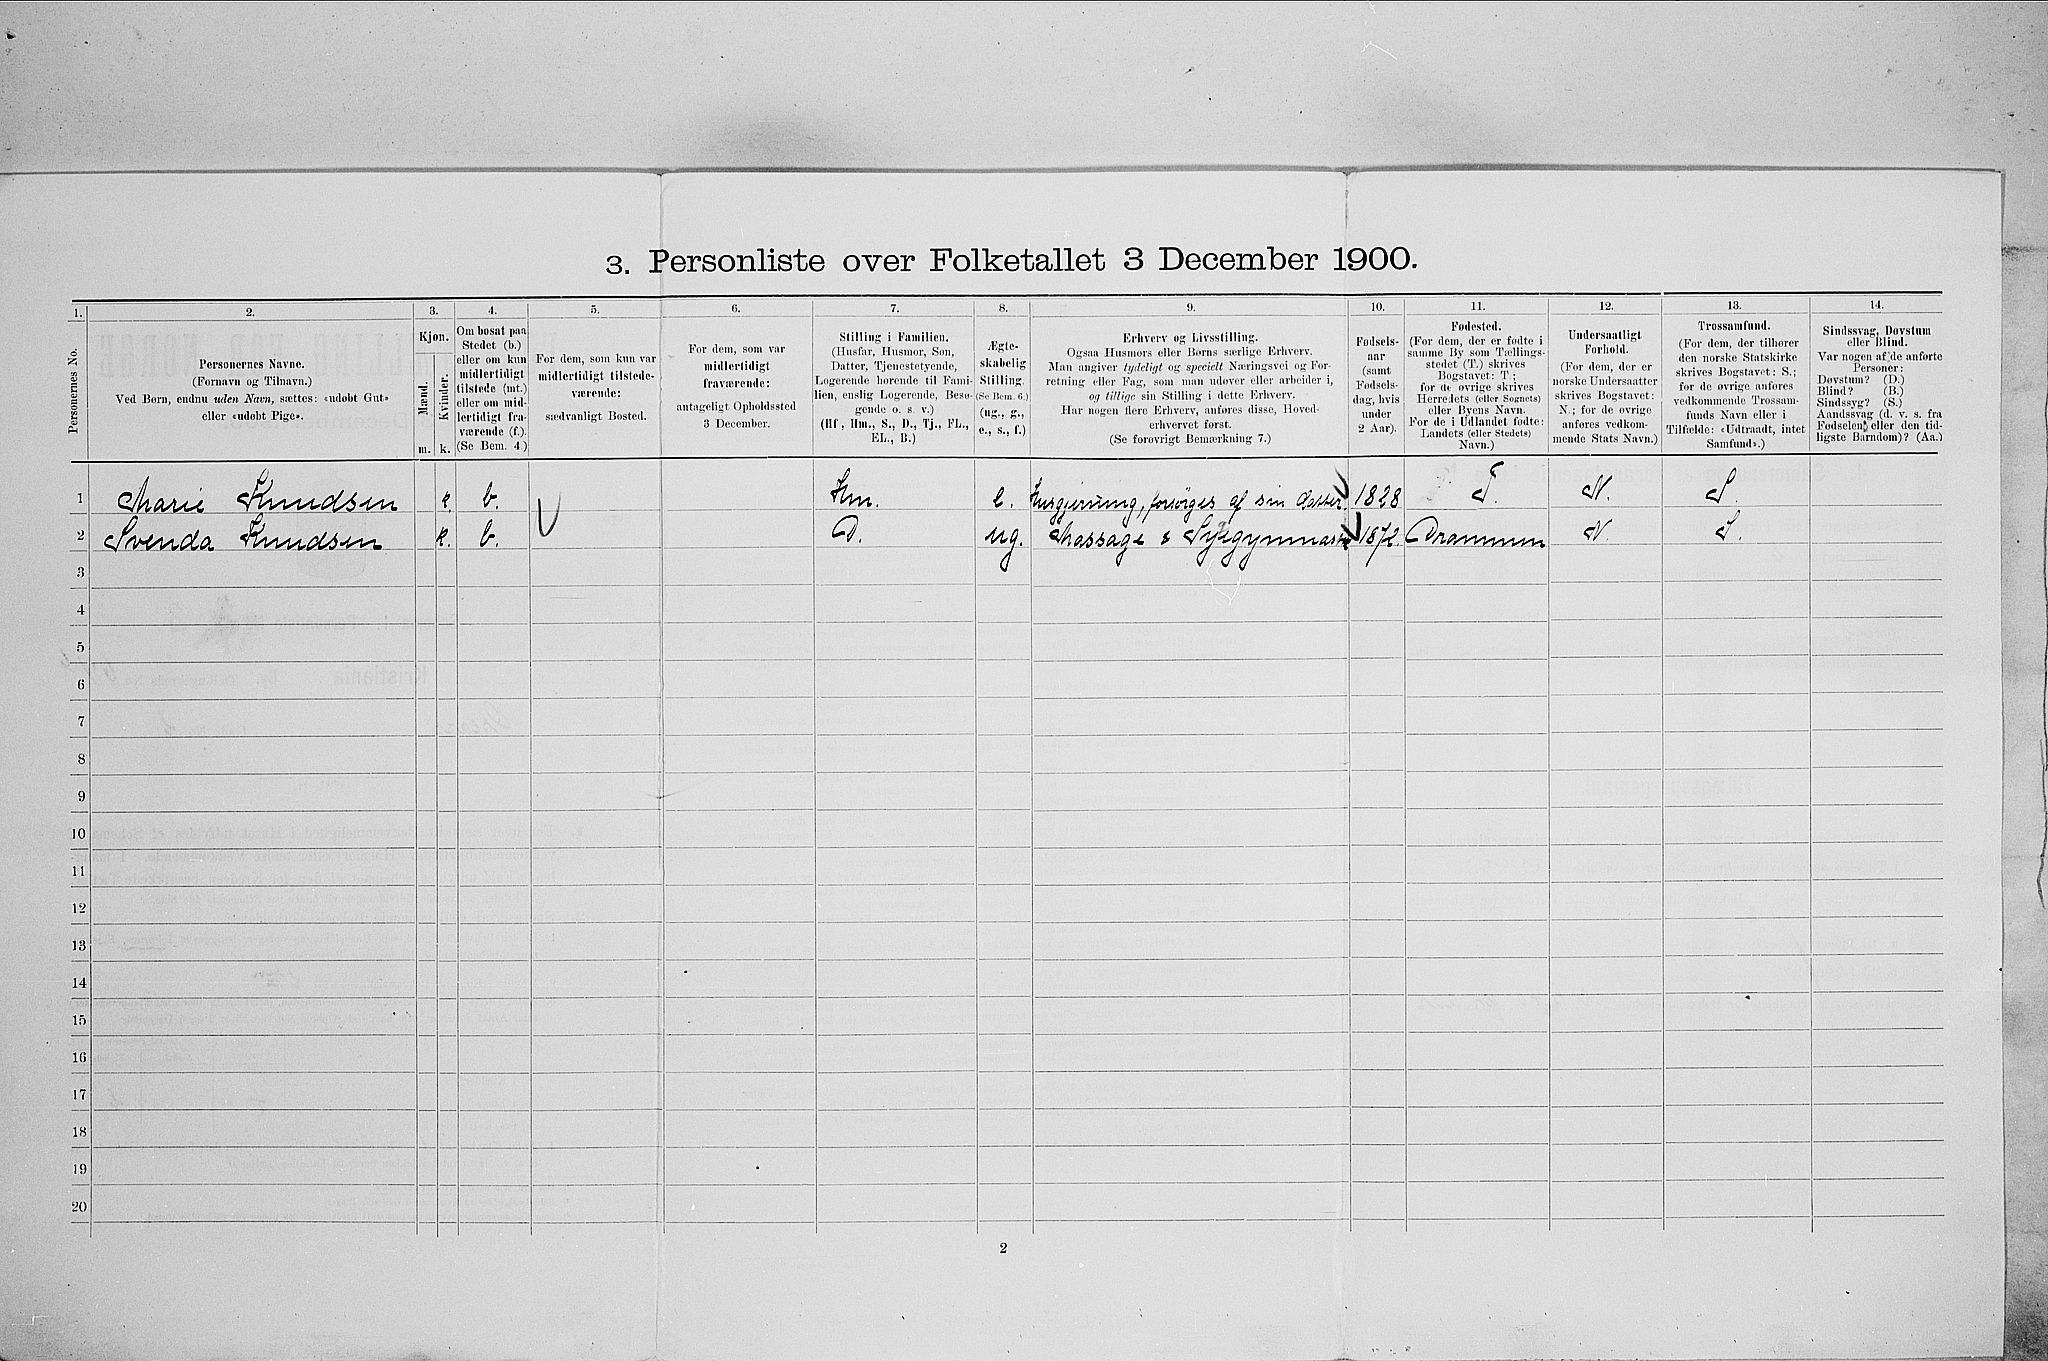 3. Personliste over Folketallet 3 December 1900.
1. 2. 3. 4. 5. 6. 7. 8. 9. 10. 11. 12. 13. 14.
Personernes No.
Personernes Navne.
(Fornavn og Tilnavn.)
Ved Børn, endnu uden Navn, sættes: «udøbt Gut»
eller «udøbt Pige».
Kjøn.
Mænd.
Kvinder.
m. k.
Om bosat paa
Stedet (b.)
eller om kun
midlertidigt
tilstede (mt.)
eller om mid-
lertidigt fra-
værende (f.).
(Se Bem. 4.)
For dem, som kun var
midlertidigt tilstede-
værende:
sædvanligt Bosted.
For dem, som var
midlertidigt
fraværende:
antageligt Opholdssted
3 December.
Stilling i Familien.
(Husfar, Husmor, Søn,
Datter, Tjenestetyende,
Logerende hørende til Fami-
lien, enslig Logerende, Besø-
gende o. s. v.)
(Hf, Hm., S., D., Tj., FL.,
EL., B.)
Ægte-
skabelig
Stilling.
(Se Bem. 6.)
(ug., g.,
e., s., f.)
Erhverv og Livsstilling.
Ogsaa Husmors eller Børns særlige Erhverv.
Man angiver tydeligt og specielt Næringsvei og For-
retning eller Fag, som man udøver eller arbeider i,
og tillige sin Stilling i dette Erhverv.
Har nogen flere Erhverv, anføres disse, Hoved-
erhvervet først.
(Se forøvrigt Bemærkning 7.)
Fødsels-
aar
(samt
Fødsels-
dag, hvis
under
2 Aar).
Fødested.
(For dem, der er fødte i
samme By som Tællings-
stedet (T.) skrives
Bogstavet: T;
for de øvrige skrives
Herredets (eller Sognets)
eller Byens Navn.
For de i Udlandet fødte:
Landets (eller Stedets)
Navn.)
Undersaatligt
Forhold.
(For dem, der er
norske Undersaatter
skrives Bogstavet:
N.; for de øvrige
anføres vedkom-
mende Stats Navn.)
Trossamfund.
(For dem, der tilhører
den norske Statskirke
skrives Bogstavet: S.;
for de øvrige anføres
vedkommende Trossam-
funds Navn eller i
Tilfælde: «Udtraadt, intet
Samfund».)
Sindssvag, Døvstum
eller Blind.
Var nogen af de anførte
Personer:
Døvstum? (D.)
Blind? (B.)
Sindssyg? (S.)
Aandssvag (d. v. s. fra
Fødselen eller den tid-
ligste Barndom)? (Aa.)
1 Marie Knudsen k. b. Hm. e. Husgjerning, forsørges af sin datter. 1828 T. N. S.
2 Svenda Knudsen k. b. D. ug. Massage & Sygegymnast 1872 Drammen N S.
3
4
5
6
7
8
9
10
11
12
13
14
15
16
17
18
19
20
2